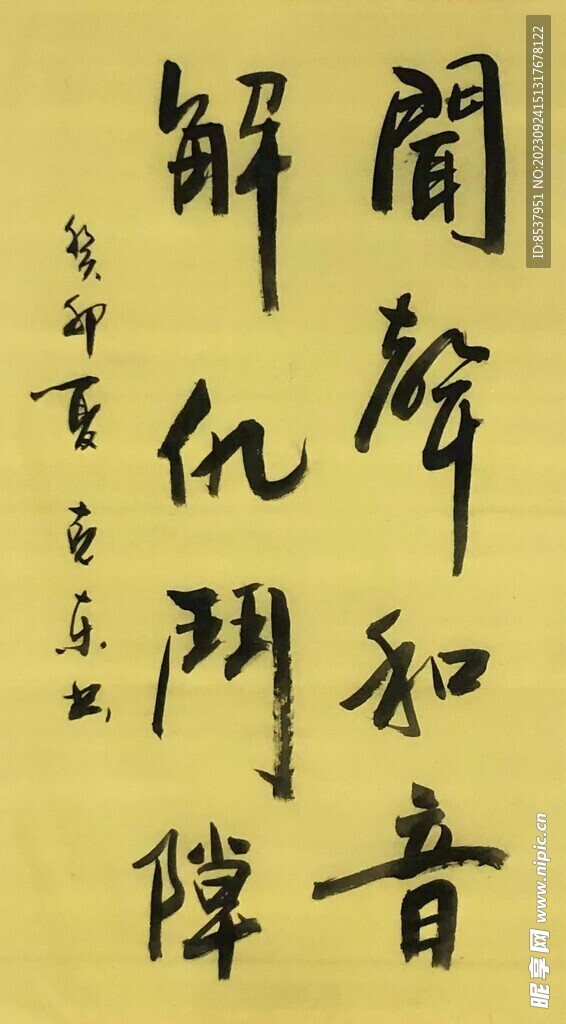 聞聲和音
解仇鬥隙
癸卯夏克东书
ID:8537951 NO:20230924151317678122
昵享网 www.nipic.cn